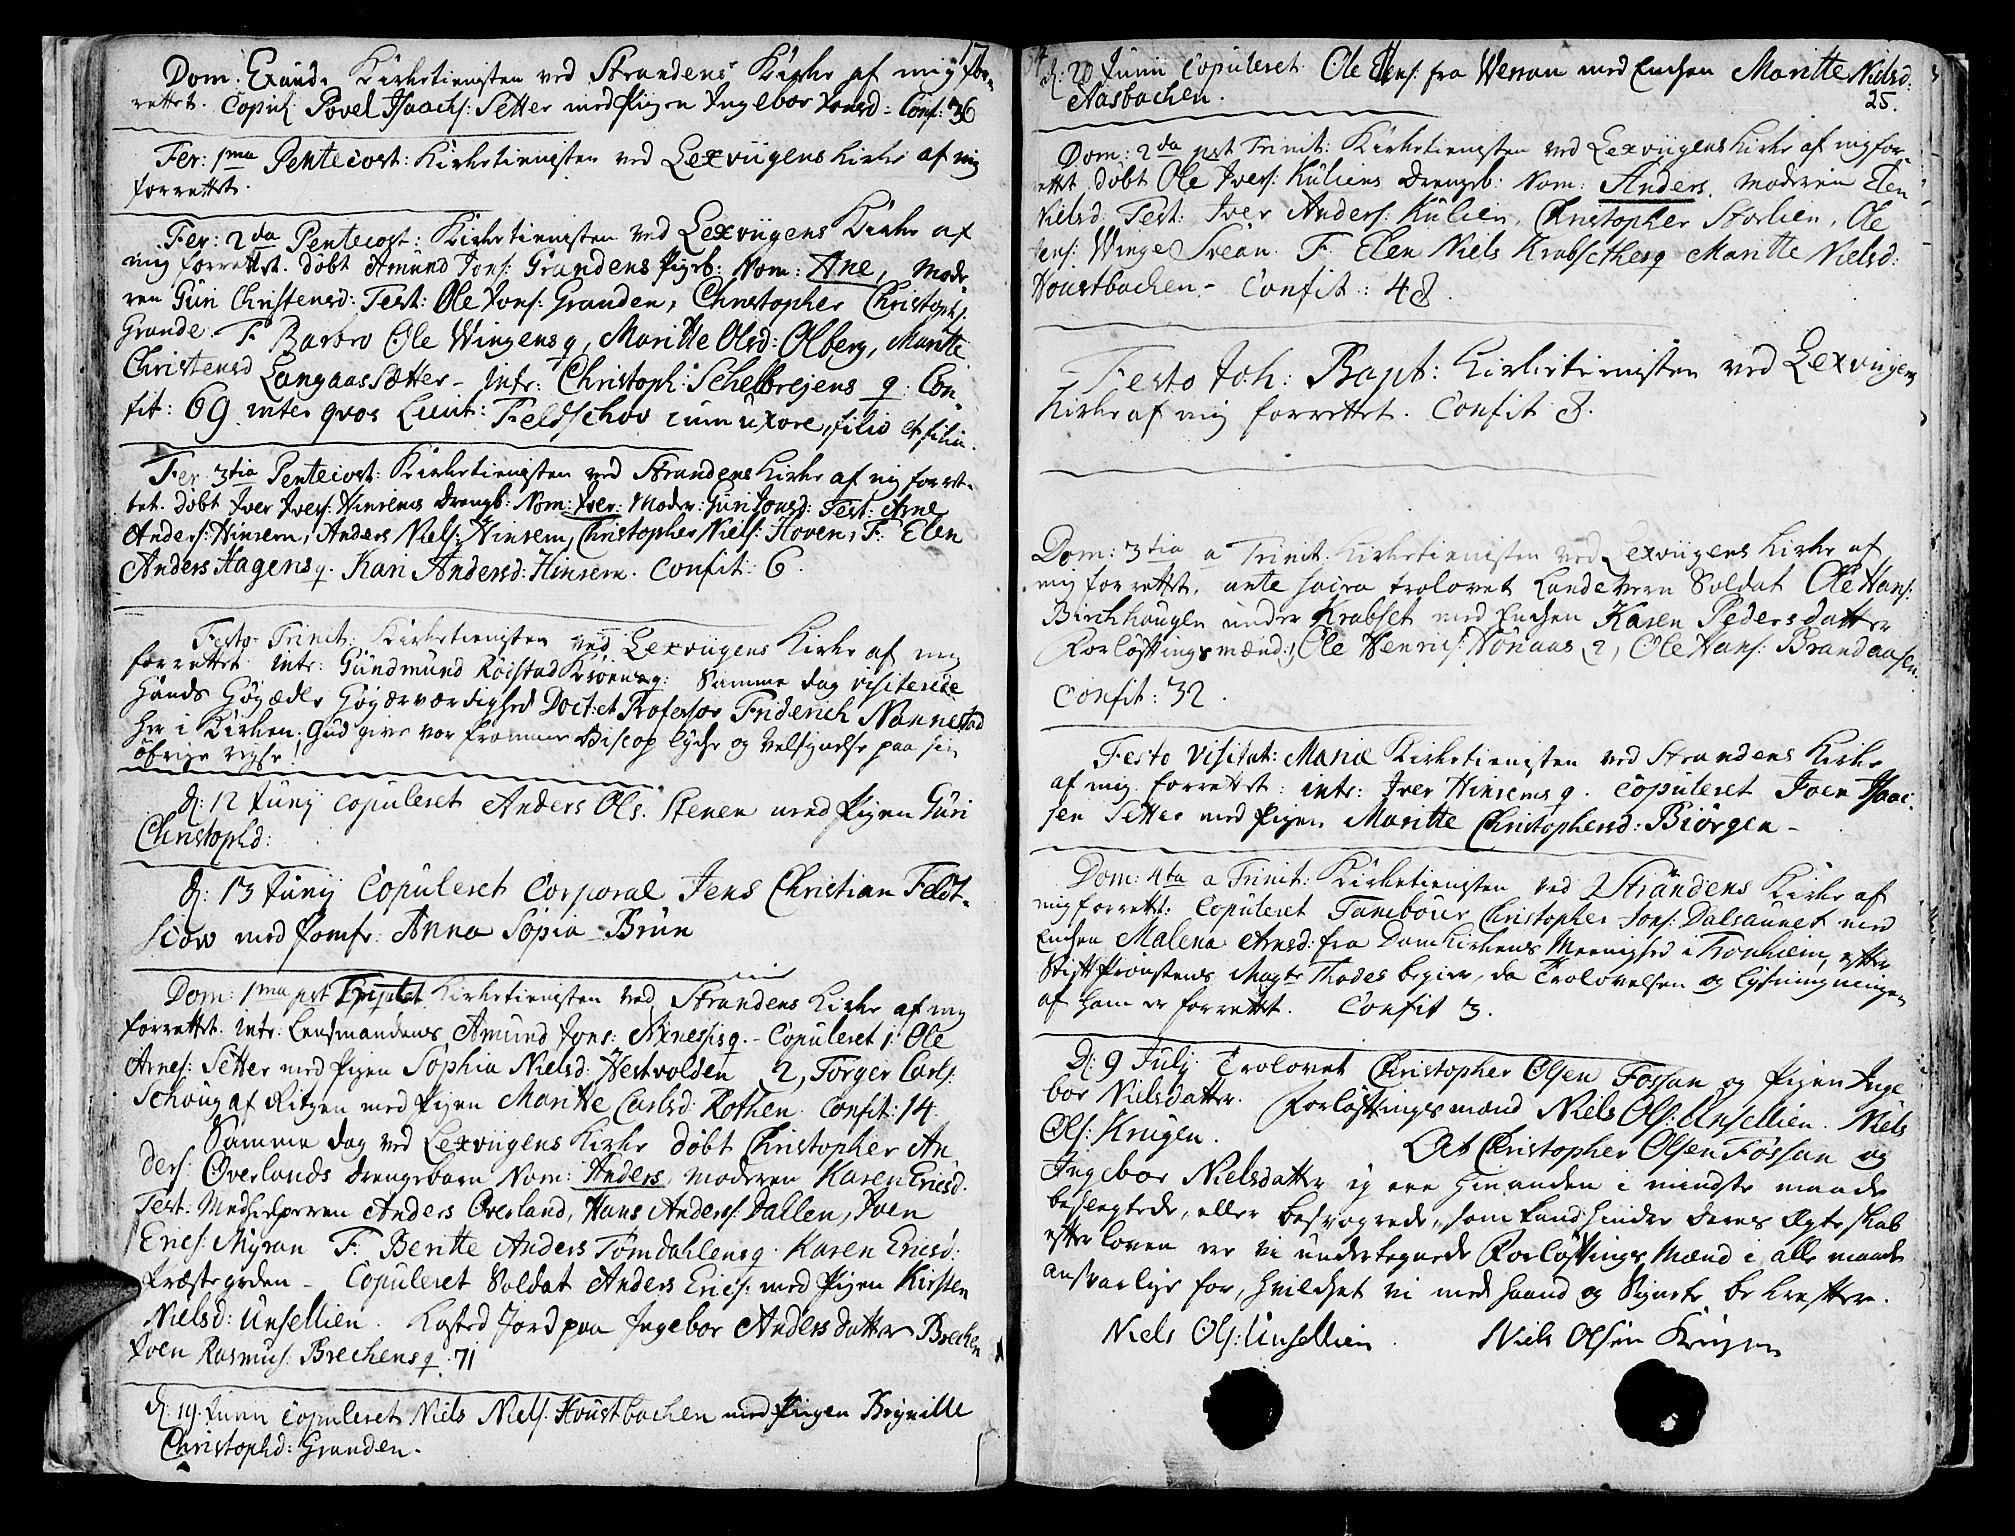 17
Dom. Exaud. Kirketienisten ved Strandens Kirke af mig for-
rettet. Copul. Povel Isachs: Setter med Pigen Ingebor Jonsd - Conf: 36
Fer: 1ma Pentecost: Kirketienisten ved Lexviigens Kirke af mig
forrettet.
Fer: 2da Pentecost: Kirketienisten ved Lexviigens Kirke af
mig forrettet. døbt Amund Jons: Grandens Pigeb: Nom: Ane, Mode-
ren Guri Christensd: Test: Ole Jons: Granden, Christopher Christophs
Grande - F. Barbro Ole Wingens q, Maritte Olsd: Olberg, Maritte
Christensd Langaas Sætter - intr: Christoph: Schelbrejens q. Con-
fit: 69 inter qvos Lieut: Feldschov cum uxore, filio et filia.
Fer 3tia Pentecost: Kirketienisten ved Strandens Kirke af mig forret-
tet. døbt Iver Ivers: Hinsems drengb: Nom: Iver: Moder: Guri Jonsd: Test: Arne
Anders: Hinsem, Anders Niels: Hinsem, Christopher Niels: Hoven, F: Elen
Anders Hagens q. Kari Andersd: Hinsem. Confit: 6.
Festo Trinit: Kirketienisten ved Lexviigens Kirke af mig
forrettet intr: Gundmund Røistad q: Samme dag visiterede
Hands Høyædle Høyærværdighed Doct: et Professor Friderich Nannestad
her i Kirken. Gud give vor fromme Biscop lycke og Velsignelse paa sin
øfrige reyse!
d: 12 Junij copuleret Anders Ols. Stenen med Pigen Guri
Christophd:
d: 13 Junij Copuleret Corporal Jens Christian Feldt-
scow med Jomfr: Anna Sopia Brun
Dom: 1ma pst Trinit Kirketienisten ved Strandens Kirke af mig
forrettet. intr: Lensmandens Amund Jons: q. - Copuleret 1. Ole
Arnes: Setter med Pigen Sophia Nielsd: Hestvolden 2, Torger Carls:
Schoug af Ritzen med Pigen Maritte Carlsd: Rothen. Confit: 14.
Samme dag ved Lexviigens Kirke døbt Christopher An
ders: Overlands drengebarn Nom: Anders moderen Karen Ericsd:
Test: Medhielperen Anders Overland, Hans Anders: Dallen, Joen
Erics: Myran F. Beritte Anders Tømdahlens q. Karen Ericsd:
Præstegrden - Copuleret Soldat Anders Erics: med Pigen Kirsten
Nielsd: Unsellien. Kasted Jord paa Ingebor Andersdatter Brechen
Joen Rasmus: Brechens q. 71
d: 19. Junii copuleret Niels Niels: Houstbachen med Pigen Brynille
Christophd: Granden.
d: 20 Junii Copuleret Ole Jens: fra Werran med Enchen Maritte Nielsd:
Aasbachen. 25.
Dom: 2da pst Trinit: Kirketienisten ved Lexviigens Kirke af mig for
rettet døbt Ole Ivers: Kuliens drengeb: Nom: Anders. Moderen Elen
Nielsd: Test: Iver Anders: Kulien, Christopher Storlien, Ole
Jens: Winge Svean. F. Elen Niels q Maritte Nielsd:
Houstbachen - Confit: 48.
Festo Joh: Bapt: Kirketienisten ved Lexviigens
Kirke af mig forrettet. Confit 8.
Dom: 3tia a Trinit. Kirketienisten ved Lexviigens Kirke af
mig forrettet. ante sacra trolovet Landevern Soldat Ole Hans:
Birchhaugen under Krabset med Enchen Karen Pedersdatter
Forløftingsmænd: 1, Ole Henrics: Hønaas 2, Ole Hans: Brandaasen.
Confit: 32.
Festo Visitat: Mariæ Kirketienisten ved Strandens Kirke
af mig forrettet: intr: Iver Hinsems q. copuleret Joen Isac-
sen Setter med Pigen Maritte Christophersd: Biørgen -
Dom: 4ta a Trinit: Kirketienisten ved Strandens Kirke af
mig forrett: Copuleret Tambour Christopher Jons: Dalsaunet med
Enchen Malena Arnsd: fra Domkirkens Meenighed i Tronhiem, efter
Stift Prousten Magr Thodes begier, da Trolovelsen og lysningningen
af ham er forrettet. Confit 3.
D: 9 Julij Trolovet Christopher Olsen Fossan og Pigen Inge
bor Nielsdatter. Forløftingsmænd Niels Ols: Unsellien. Niels
Ols: Krugen. At Christopher Olsen Fossan og
Ingebor Nielsdatter ey ere hinanden i mindste maade
beslegtede, eller besvogrede, som kand hindre deres Ægteskab
efter loven ere vi undertegnede Forløftings Mænd i alle maade
ansvarlige for, hvilchet vi med haand og Signete bekrefter.
Niels Ols: Unsellien. Niels Olsen Krugen